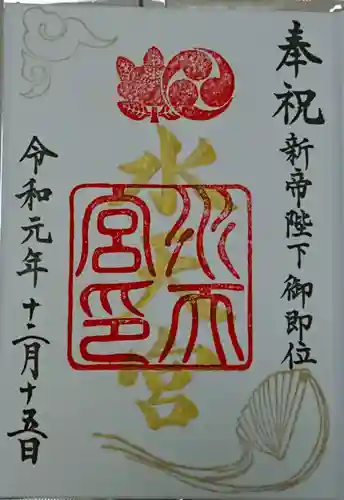 奉祝 新帝陛下御即位
水天宮
水天宮印
令和元年十二月十五日